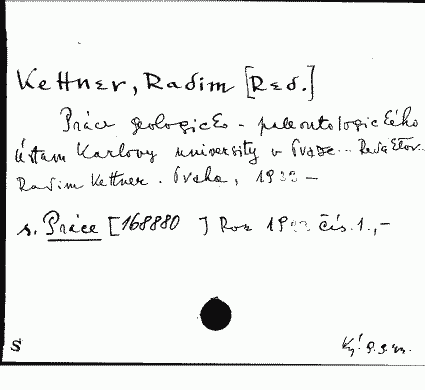 Kettner, Radim [Red.]
Práce geologicko-paleontologického
ústavu Karlovy university v Praze... Redaktor..
Radim Kettner. Praha, 1933 —
s. Práce [168880 ] Rok 1933 čís. 1.,-
S